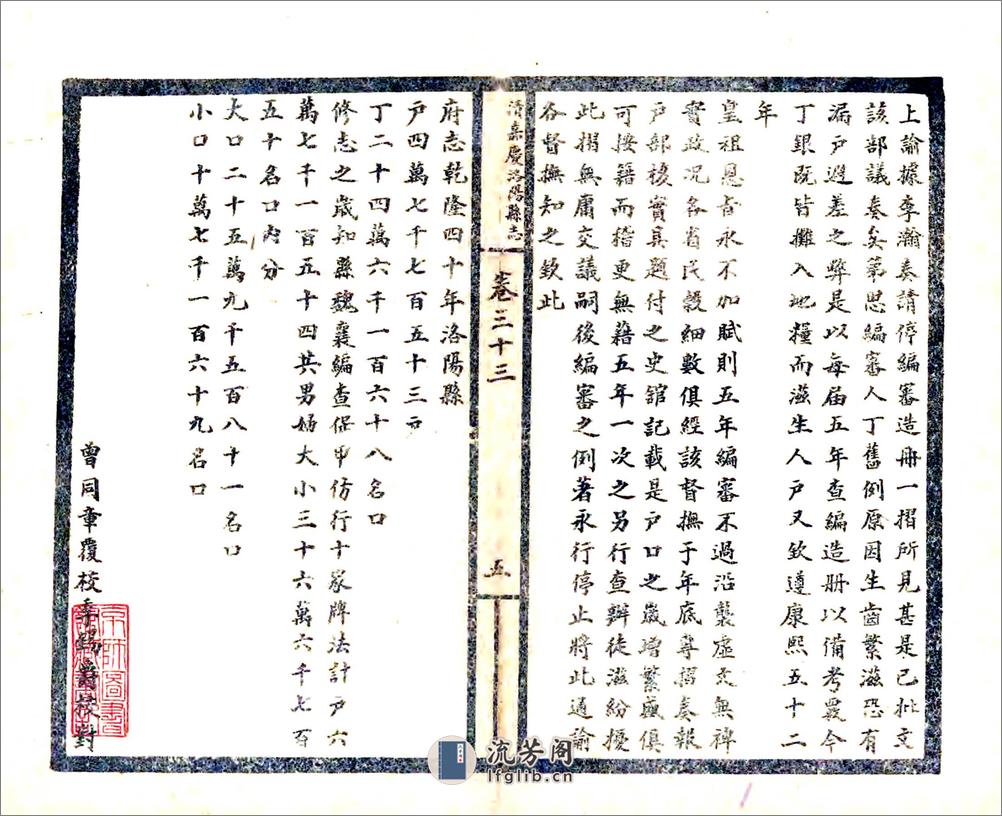 上諭據李瀚奏請停編審造冊一摺所見甚是已批交
該部議奏矣第思編審人丁舊例原因生齒繁滋恐有
漏戸避差之弊是以每屆五年查編造冊以備考覈今
丁銀既皆攤入地糧而滋生人戸又欽遵康熙五十二
年
皇祖恩旨永不加賦則五年編審不過沿襲虛文無裨
實政况各省民穀細數俱經該督撫于年底專摺奏報
戸部核實具題付之史館記載是戸口之歲增繁盛俱
可按籍而稽更無藉五年一次之另行查辦徒滋紛擾
此摺無庸交議嗣後編審之例著永行停止將此通諭
各督撫知之欽此
清嘉慶洛陽縣志
卷三十三
五
府志乾隆四十年洛陽縣
戸四萬七千七百五十三
丁二十四萬六千一百六十八名口
修志之歲知縣魏襄編查保甲仿行十家牌法計戸六
萬七千一百五十四共男婦大小三十六萬六千七百
五十名口內分
大口二十五萬九千五百八十一名口
小口十萬七千一百六十九名口
曾同章覆校李錫爵校對
京師圖書
流芳阁
lfglib.cn